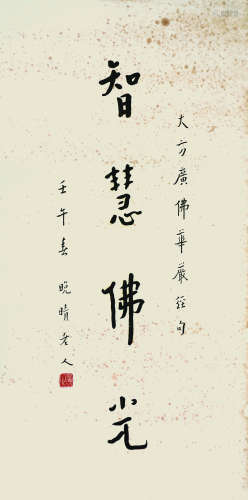 大方廣佛華嚴經句
智慧佛光
壬午春晚晴老人